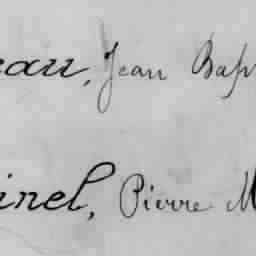 eau, Jean Bap
inel, Pierre M